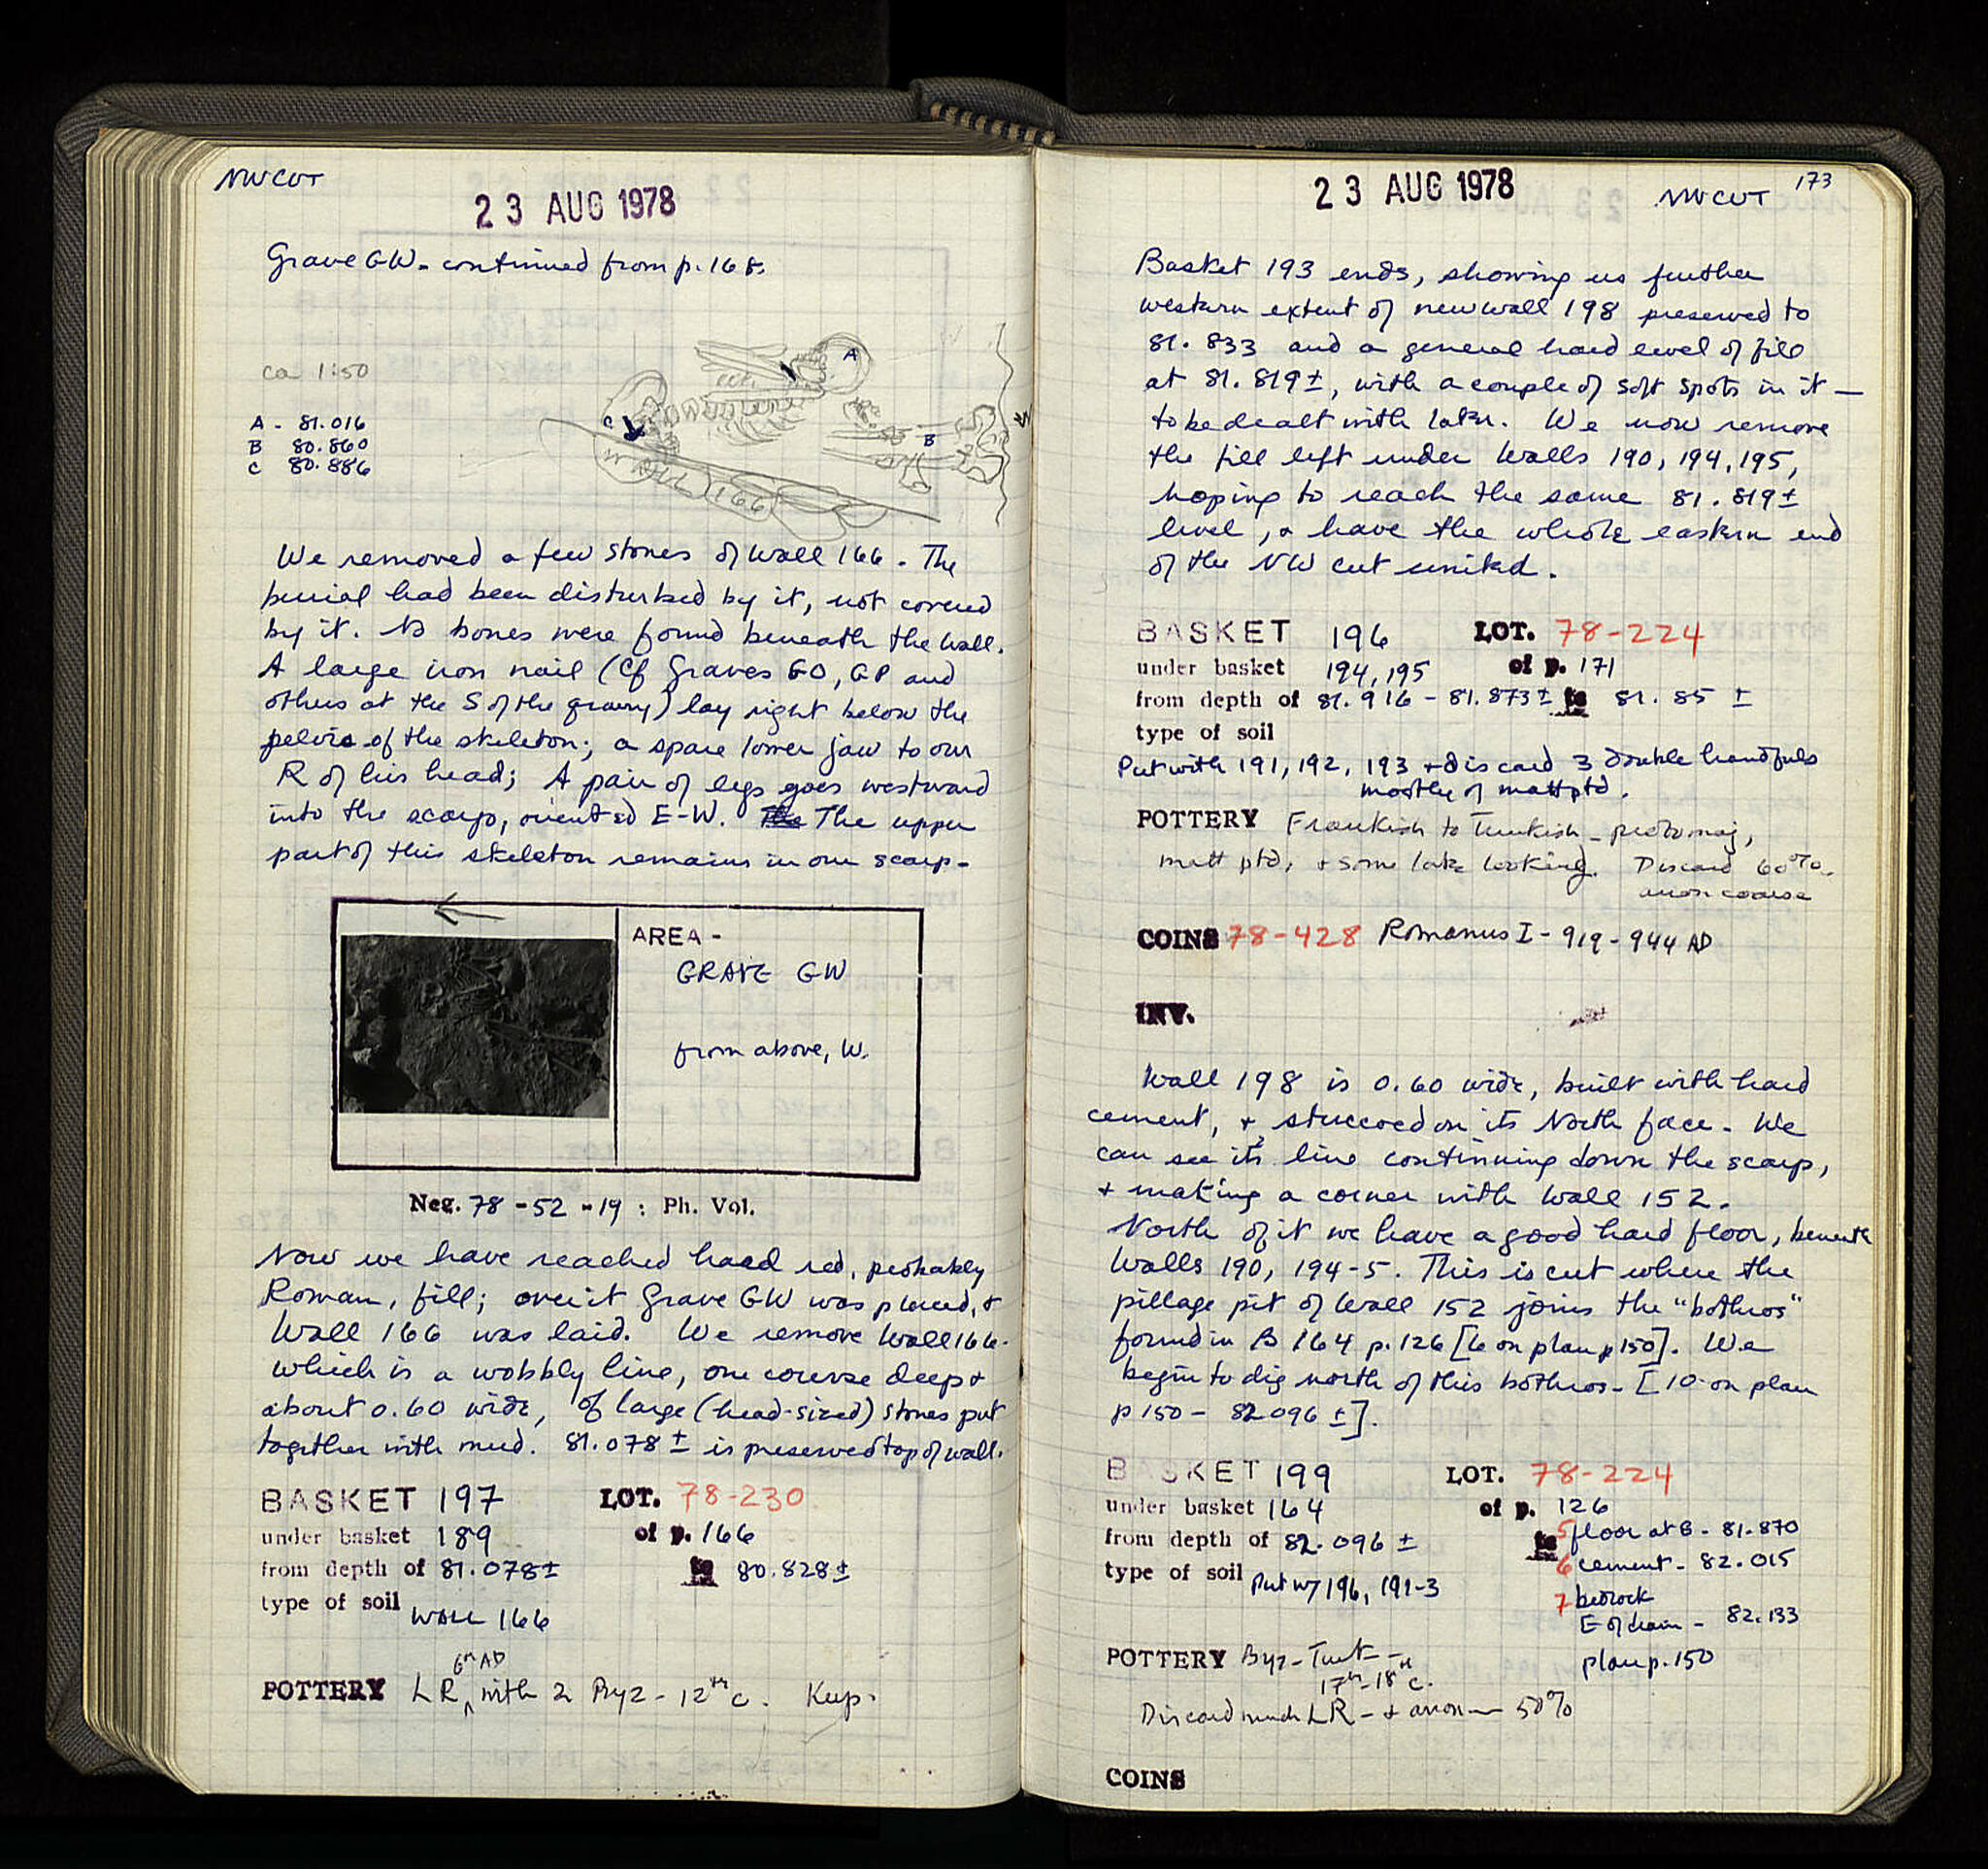 NW CUT
23 AUG 1978
Grave GW - continued from p. 168.
ca 1:50
A
A - 81.016
B 80.860
C 80.886
C
B
WALL 166
We removed a few stones of wall 166. The
burial had been disturbed by it, not covered
by it. No bones were found beneath the wall.
A large iron nail (Cf Graves GO, GP and
others at the S of the ) lay right below the
pelvis of the skeleton; a spare lower jaw to our
R of his head; A pair of legs goes westward
into the scarp, oriented E-W. The The upper
part of this skeleton remains in our scarp -
AREA -
GRAVE GW
from above, W.
Neg. 78-52-19 : Ph. Vol.
Now we have reached hard red, probably
Roman, fill; over it Grave GW was placed, &
Wall 166 was laid. We remove Wall 166.
which is a wobbly line, one course deep &
about 0.60 wide, of large (head-sized) stones put
together with mud. 81.078 ± is preserved top of wall.
BASKET 197 LOT. 78-230
under basket 189 of p. 166
from depth of 81.078± to 80.828±
type of soil WALL 166
6th AD
POTTERY LR ^ with 2 Byz - 12th c. Keep.
23 AUG 1978
NW CUT
173
Basket 193 ends, showing us further
western extent of new wall 198 preserved to
81.833 and a general hard level of fill
at 81.819±, with a couple of soft spots in it —
to be dealt with later. We now remove
the fill left under Walls 190, 194, 195,
hoping to reach the same 81.819±
level, & have the whole eastern end
of the NW cut united.
BASKET 196 LOT. 78-224
under basket 194, 195 of p. 171
from depth of 81.916 - 81.873± to 81.85 ±
type of soil
Put with 191, 192, 193 & discard 3 double handfuls
mostly of matt ptd.
POTTERY Frankish to Turkish - proto maj,
matt ptd, & some late looking. Discard 60%.
anon coarse
COINS 78-428 Romanus I - 919-944 AD
INV.
Wall 198 is 0.60 wide, built with hard
cement, & stuccoed on its North face. We
can see its line continuing down the scarp,
& making a corner with Wall 152.
North of it we have a good hard floor, beneath
Walls 190, 194-5. This is cut where the
pillage pit of Wall 152 joins the "bothros"
found in B 164 p. 126 [6 on plan p 150]. We
begin to dig north of this bothros - [10 on plan
p 150 - 82.096 ±].
BASKET 199 LOT. 78-224
under basket 164 of p. 126
from depth of 82.096 ± to 5 floor at B - 81.870
6 cement - 82.015
type of soil Put w/ 196, 191-3
7 bedrock
E of drain - 82.133
plan p. 150
POTTERY Byz - Turk -
17th-18th c.
Discard much LR - & anon — 50%
COINS